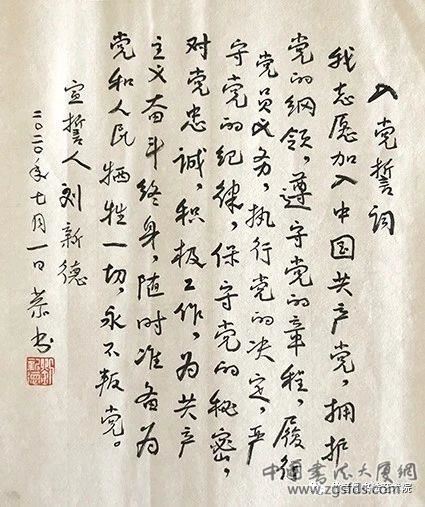 入党誓词
我志愿加入中国共产党，拥护
党的纲领，遵守党的章程，履行
党员义务，执行党的决定，严
守党的纪律，保守党的秘密，
对党忠诚，积极工作，为共产
主义奋斗终身，随时准备为
党和人民牺牲一切，永不叛党。
宣誓人刘新德
二〇二〇年七月一日 恭书
中国书法大厦网
www.zgsfds.com